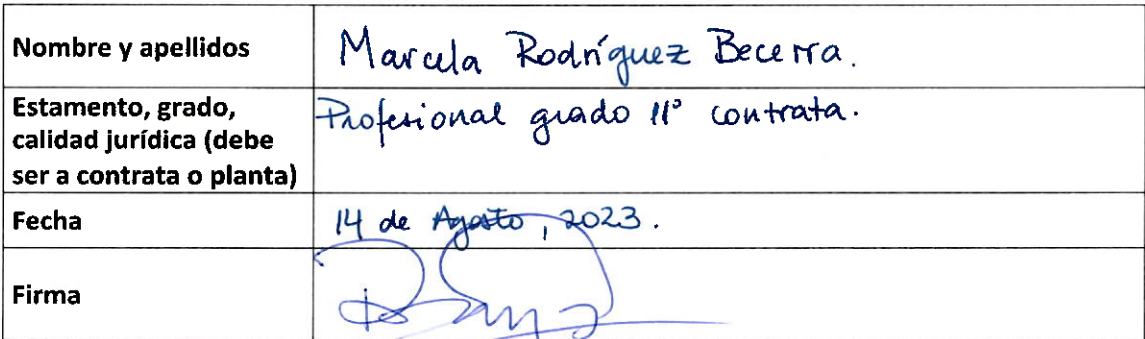 Nombre y apellidos
Marcela Rodríguez Becerra.
Estamento, grado,
calidad jurídica (debe
ser a contrata o planta)
Profesional grado 11° contrata.
Fecha
14 de Agosto, 2023.
Firma